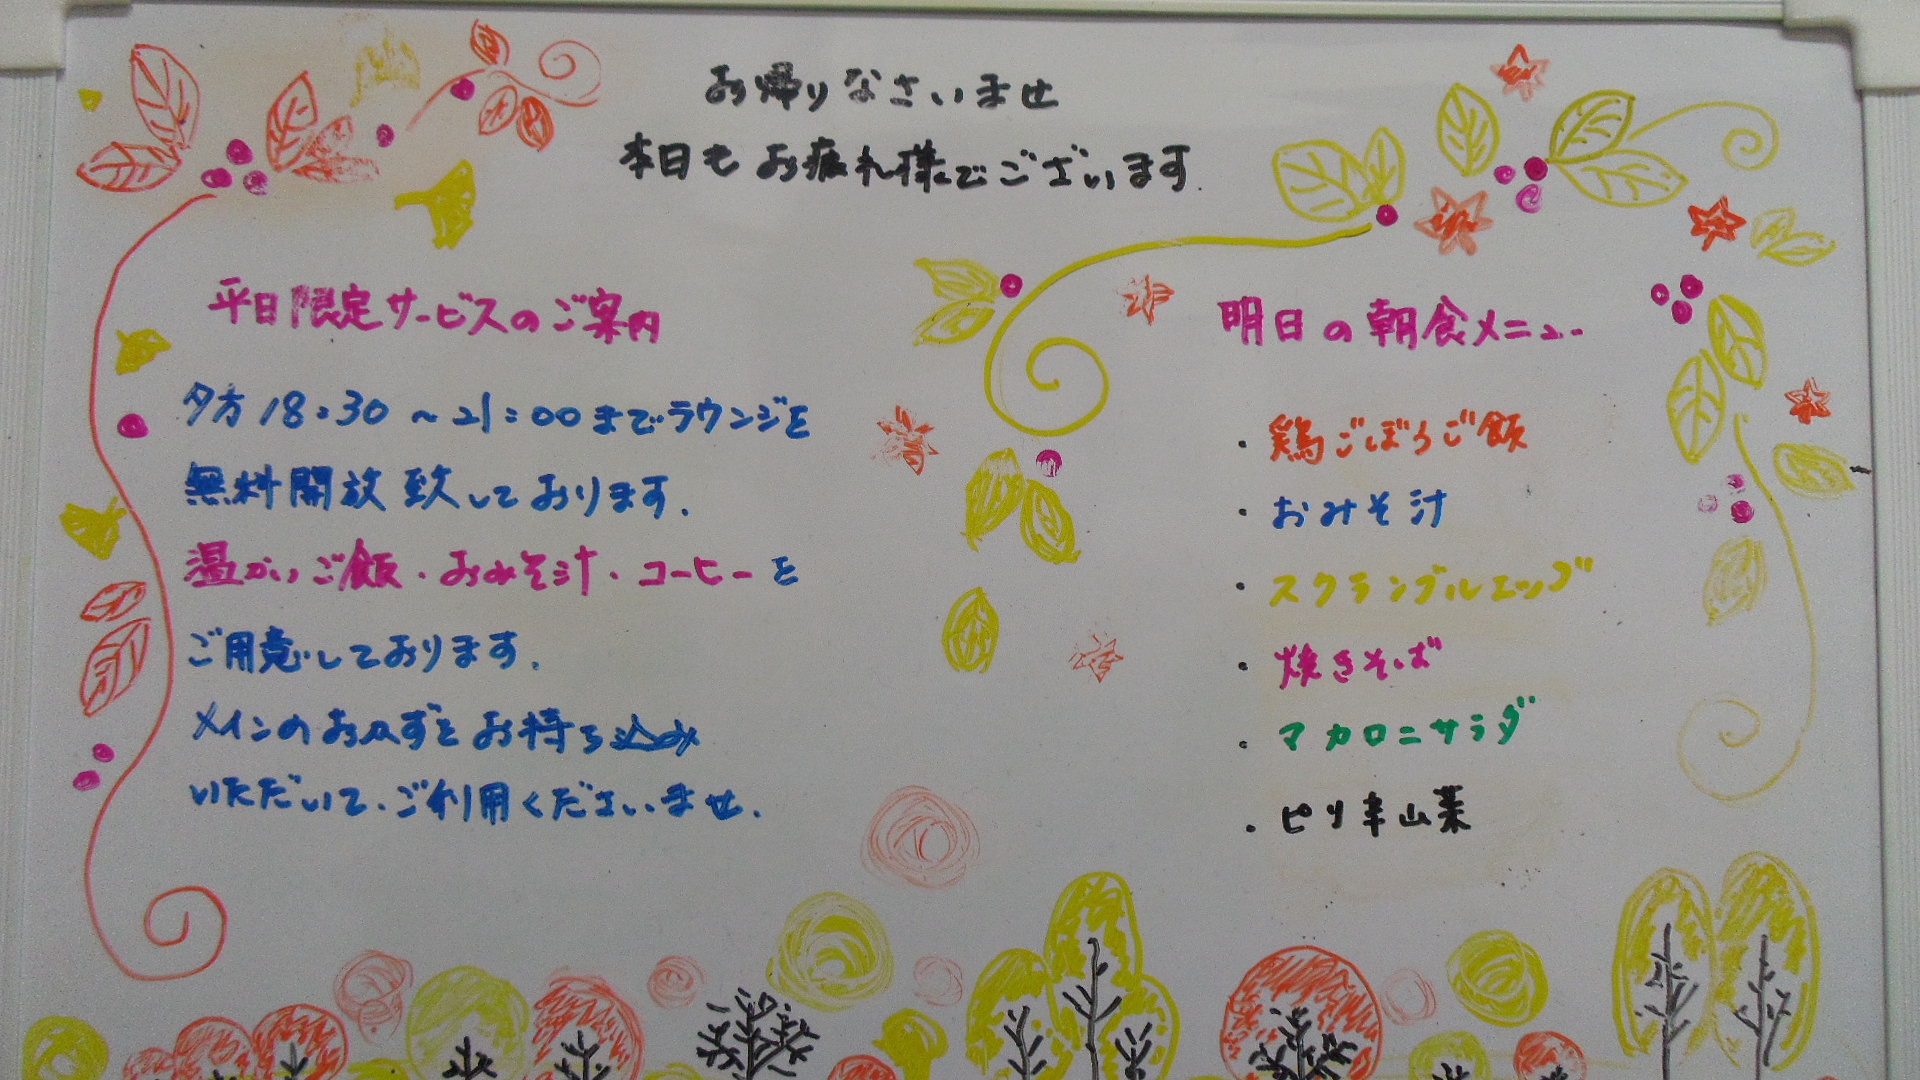 お帰りなさいませ
本日もお疲れ様でございます.
平日限定サービスのご案内
夕方18:30～21:00までラウンジを
無料開放致しております.
温かいご飯・おみそ汁・コーヒーを
ご用意しております.
メインのおかずをお持ち込み
いただいて、ご利用くださいませ.
明日の朝食メニュー
・鶏ごぼうご飯
・おみそ汁
・スクランブルエッグ
・焼きそば
・マカロニサラダ
・ピリ辛山菜